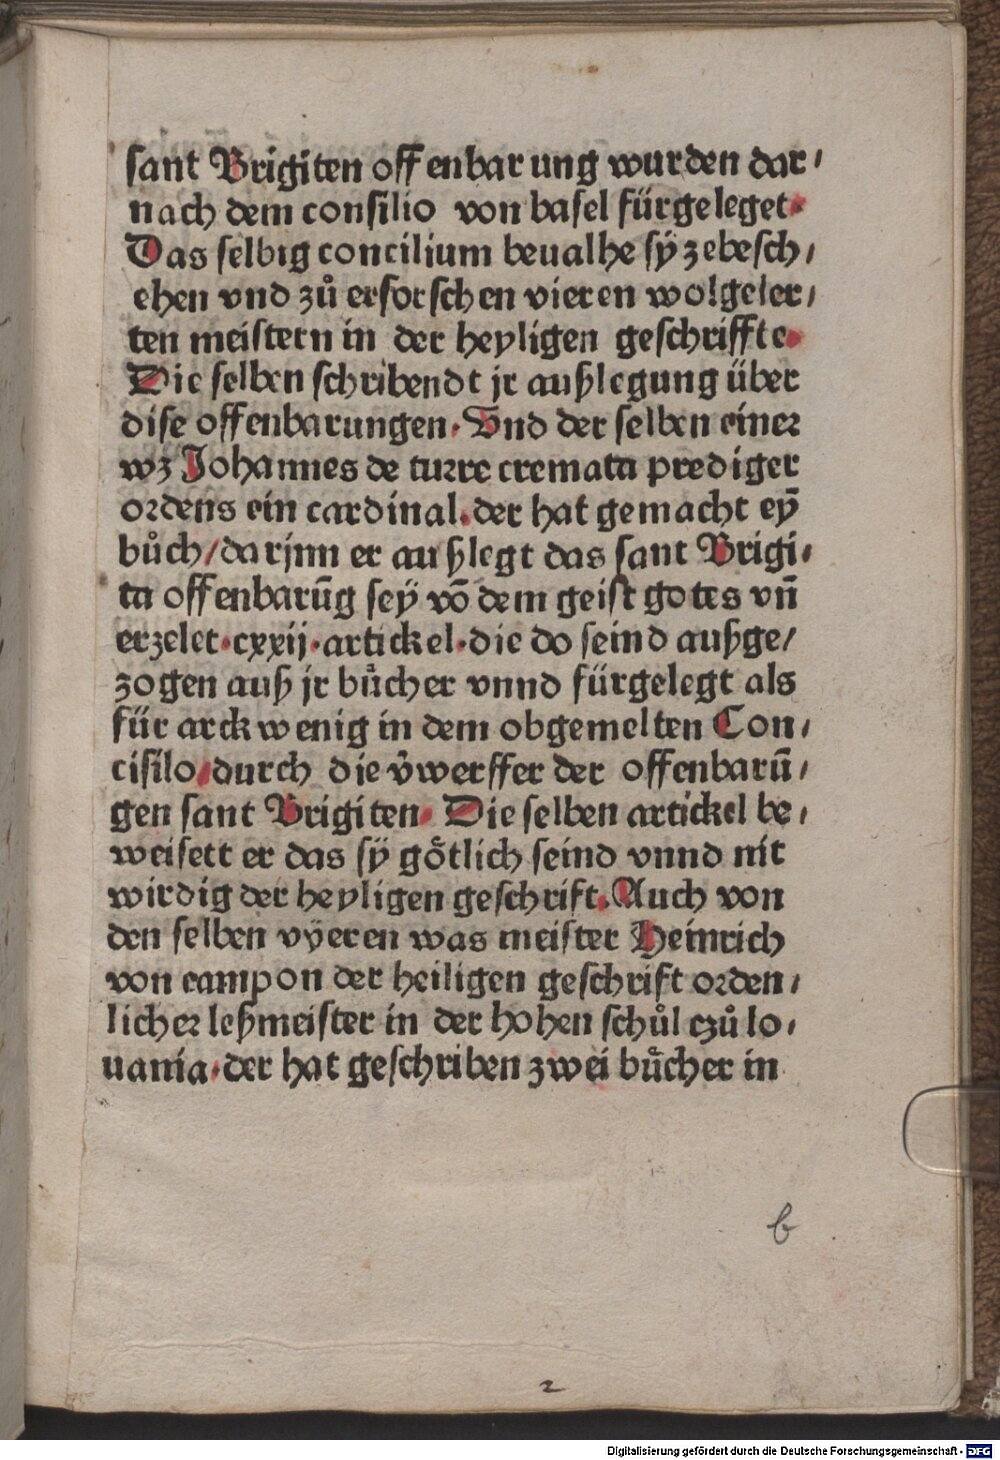 sant Brigiten offenbarung wurden dar⸗
nach dem consilio von basel fürgeleget·
Das selbig concilium beualhe sÿ zebesch⸗
ehen vnd zů erforschen vieren wolgeler⸗
ten meistern in der heyligen geschriffte·
Die selben schribendt jr außlegung über
dise offenbarungen· Vnd der selben einer
wz Johannes de turre cremata prediger
ordens ein cardinal· der hat gemacht eÿ
bůch/ darjnn er außlegt das sant Brigi⸗
ta offenbarūg seÿ vō dem geist gotes vn̄
erzelet· cxxij· artickel· die do seind außge⸗
zogen auß jr bücher vnnd fürgelegt als
für arckwenig in dem obgemelten Con⸗
cisilo/ durch die v̓werffer der offenbarū⸗
gen sant Brigiten· Die selben artickel be⸗
weisett er das sÿ götlich seind vnnd nit
wirdig der heyligen geschrift. Auch von
den selben vÿeren was meister Heinrich
von campon der heiligen geschrift orden⸗
licher leßmeister in der hohen schůl czů lo⸗
uania· der hat geschriben zwei bücher in
b
2
Digitalisierung gefördert durch die Deutsche Forschungsgemeinschaft - DFG